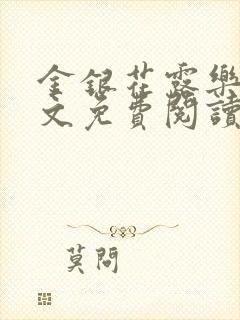 金銀花露樂
文免費閱讀
莫問